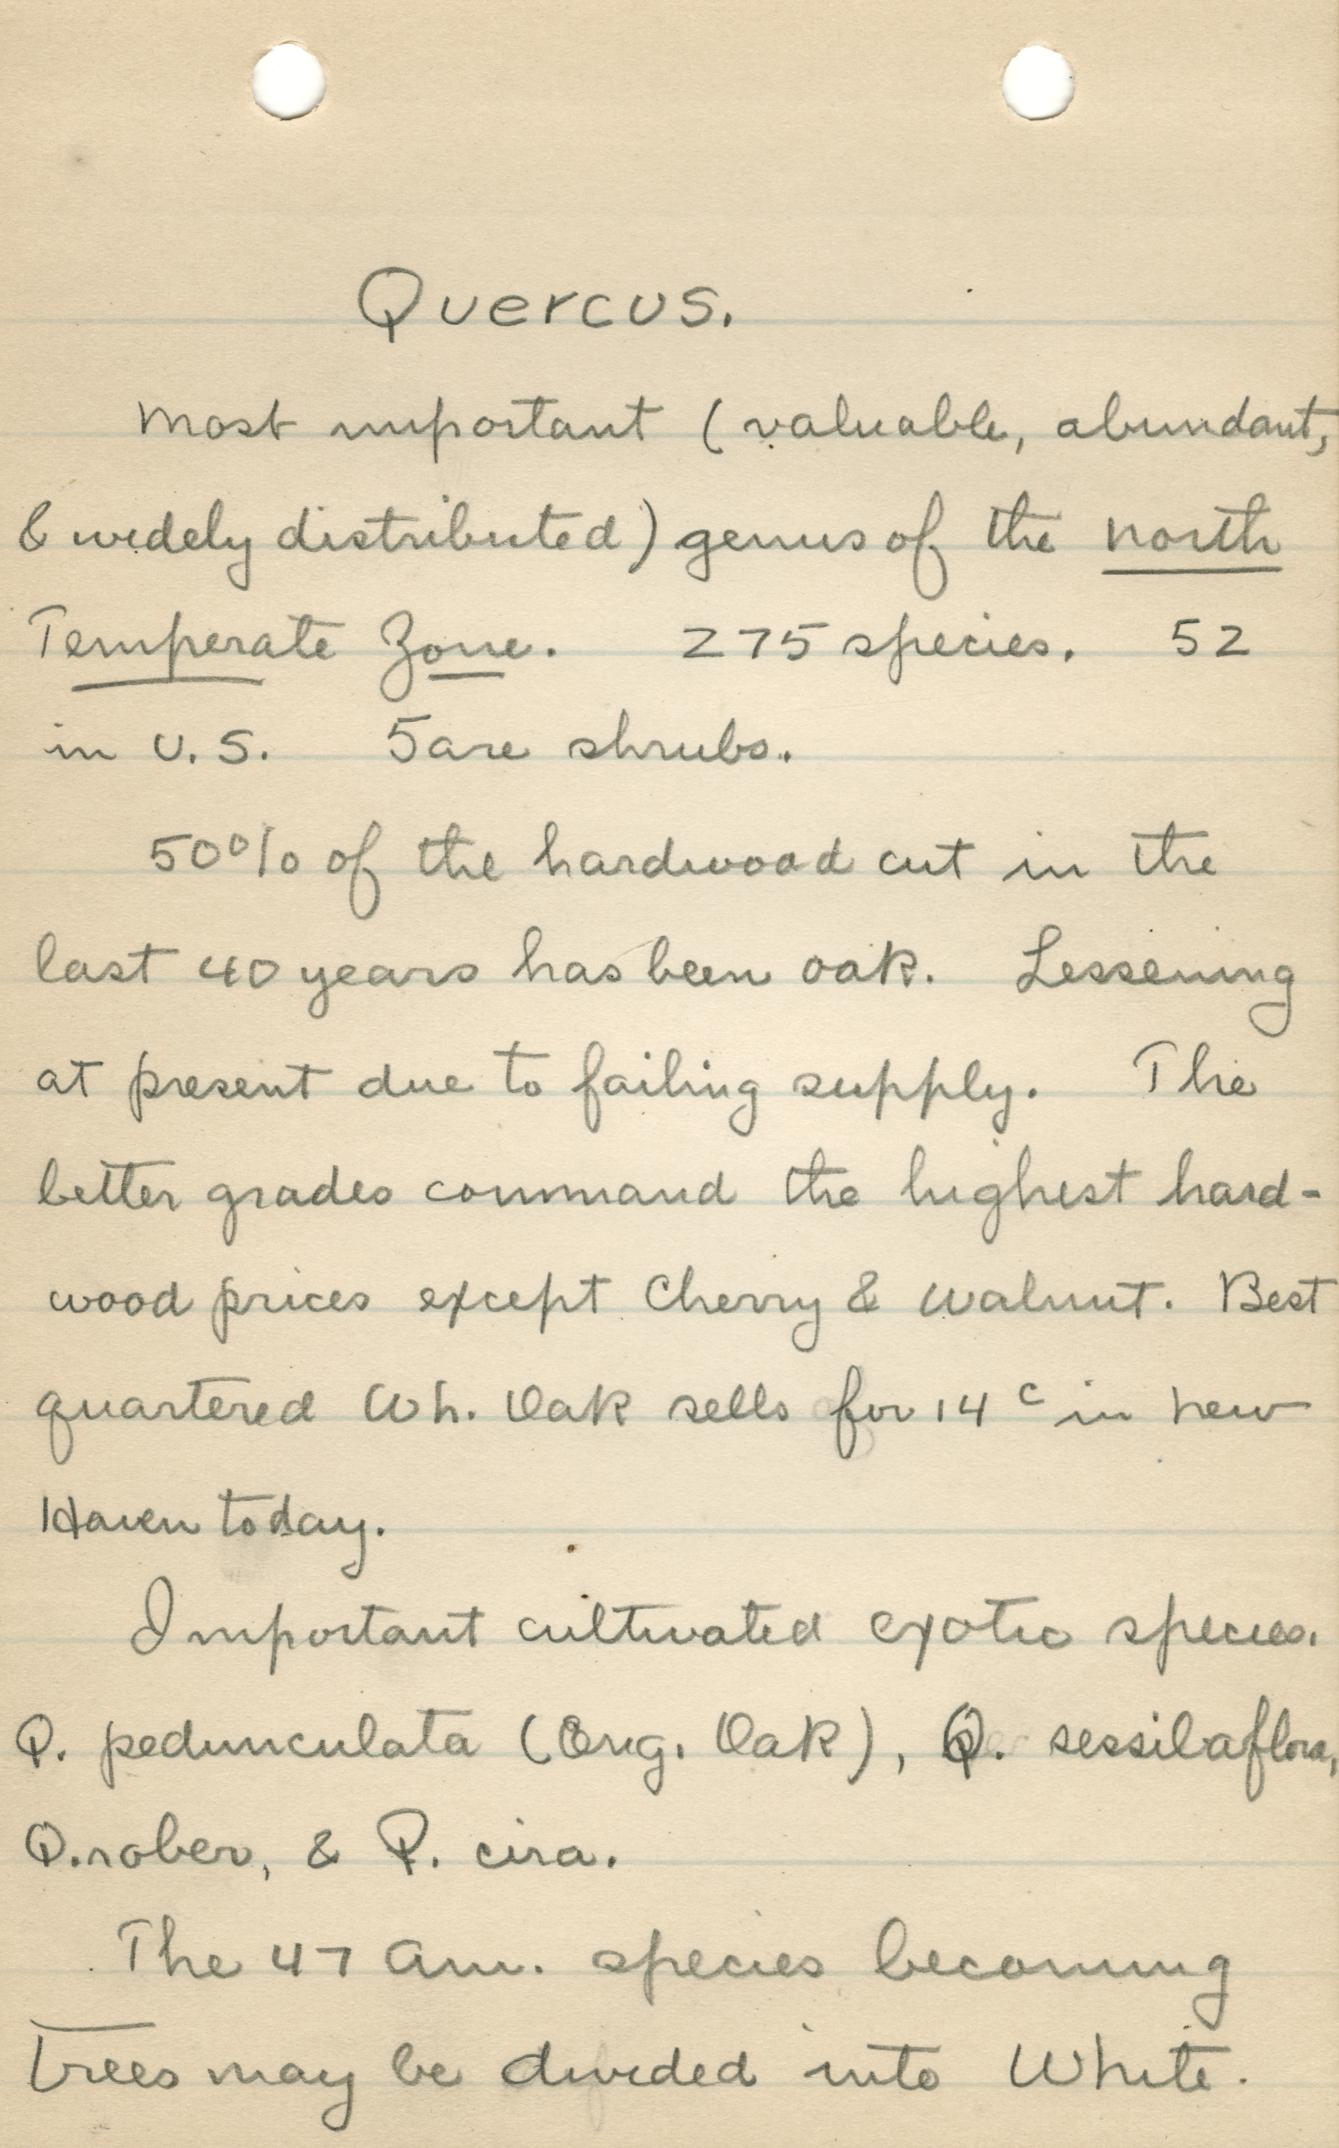 Quercus.
Most important (valuable, abundant,
& widely distributed) genus of the north
Temperate Zone. 275 species. 52
in U.S. 5 are shrubs.
50% of the hardwood cut in the
last 40 years has been oak. Lessening
at present due to failing supply. The
better grades command the highest hard-
wood prices except Cherry & Walnut. Best
quartered Wh. Oak sells for 14c in New
Haven today.
Important cultivated exotic species.
Q. pedunculata (Eng. Oak), Q. sessilaflora,
Q. rober, & Q. cira.
The 47 Am. species becoming
trees may be divided into White.